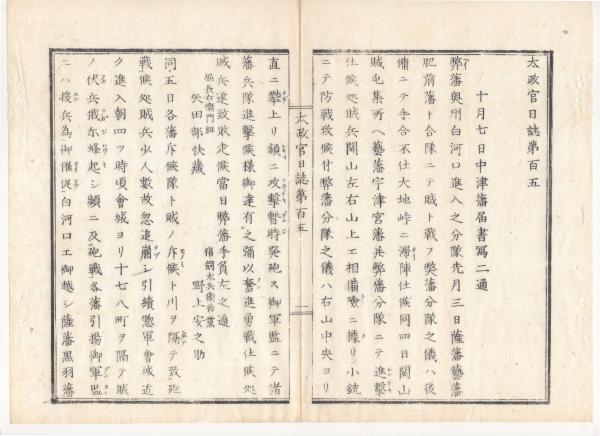 太政官日誌第百五
十月七日中津藩届書寫二通
弊藩奥州白河口進入之分隊先月三日薩藩藝藩
肥前藩ト合隊ニテ賊ト戰フ獘藩分隊之儀ハ後
備ニテ手合不仕大地峠ニ滯陣仕候同四日関山
賊屯集所ヘ藝藩宇津宮藩兵弊藩分隊ニテ進撃
仕候処賊兵関山左右山上エ相備險ニ據リ小銃
ニテ防戰致候付弊藩分隊之儀ハ右山中央ヨリ
太政官日誌第百五
一
直ニ攀上リ頻ニ攻擊暫時発砲ス御軍監ニテ諸
藩兵隊進擊候様御達有之弥以奮進勇戰仕候処
賊兵遂致敗走候當日弊藩手負左之通
堀長右衛門組
矢田部快藏
野上安之助
同五日各藩斥候隊ト賊ノ斥候ト川ヲ隔テ致砲
戰候処賊兵少人數故忽追崩シ引續惣軍會城近
ク進入朝四ツ時頃會城ヨリ十七八町ヲ隔テ賊
ノ伏兵俄尓蜂起シ頻ニ及砲戰各藩引揚御軍監
ニハ援兵為御催促白河口エ御越シ薩藩黒羽藩